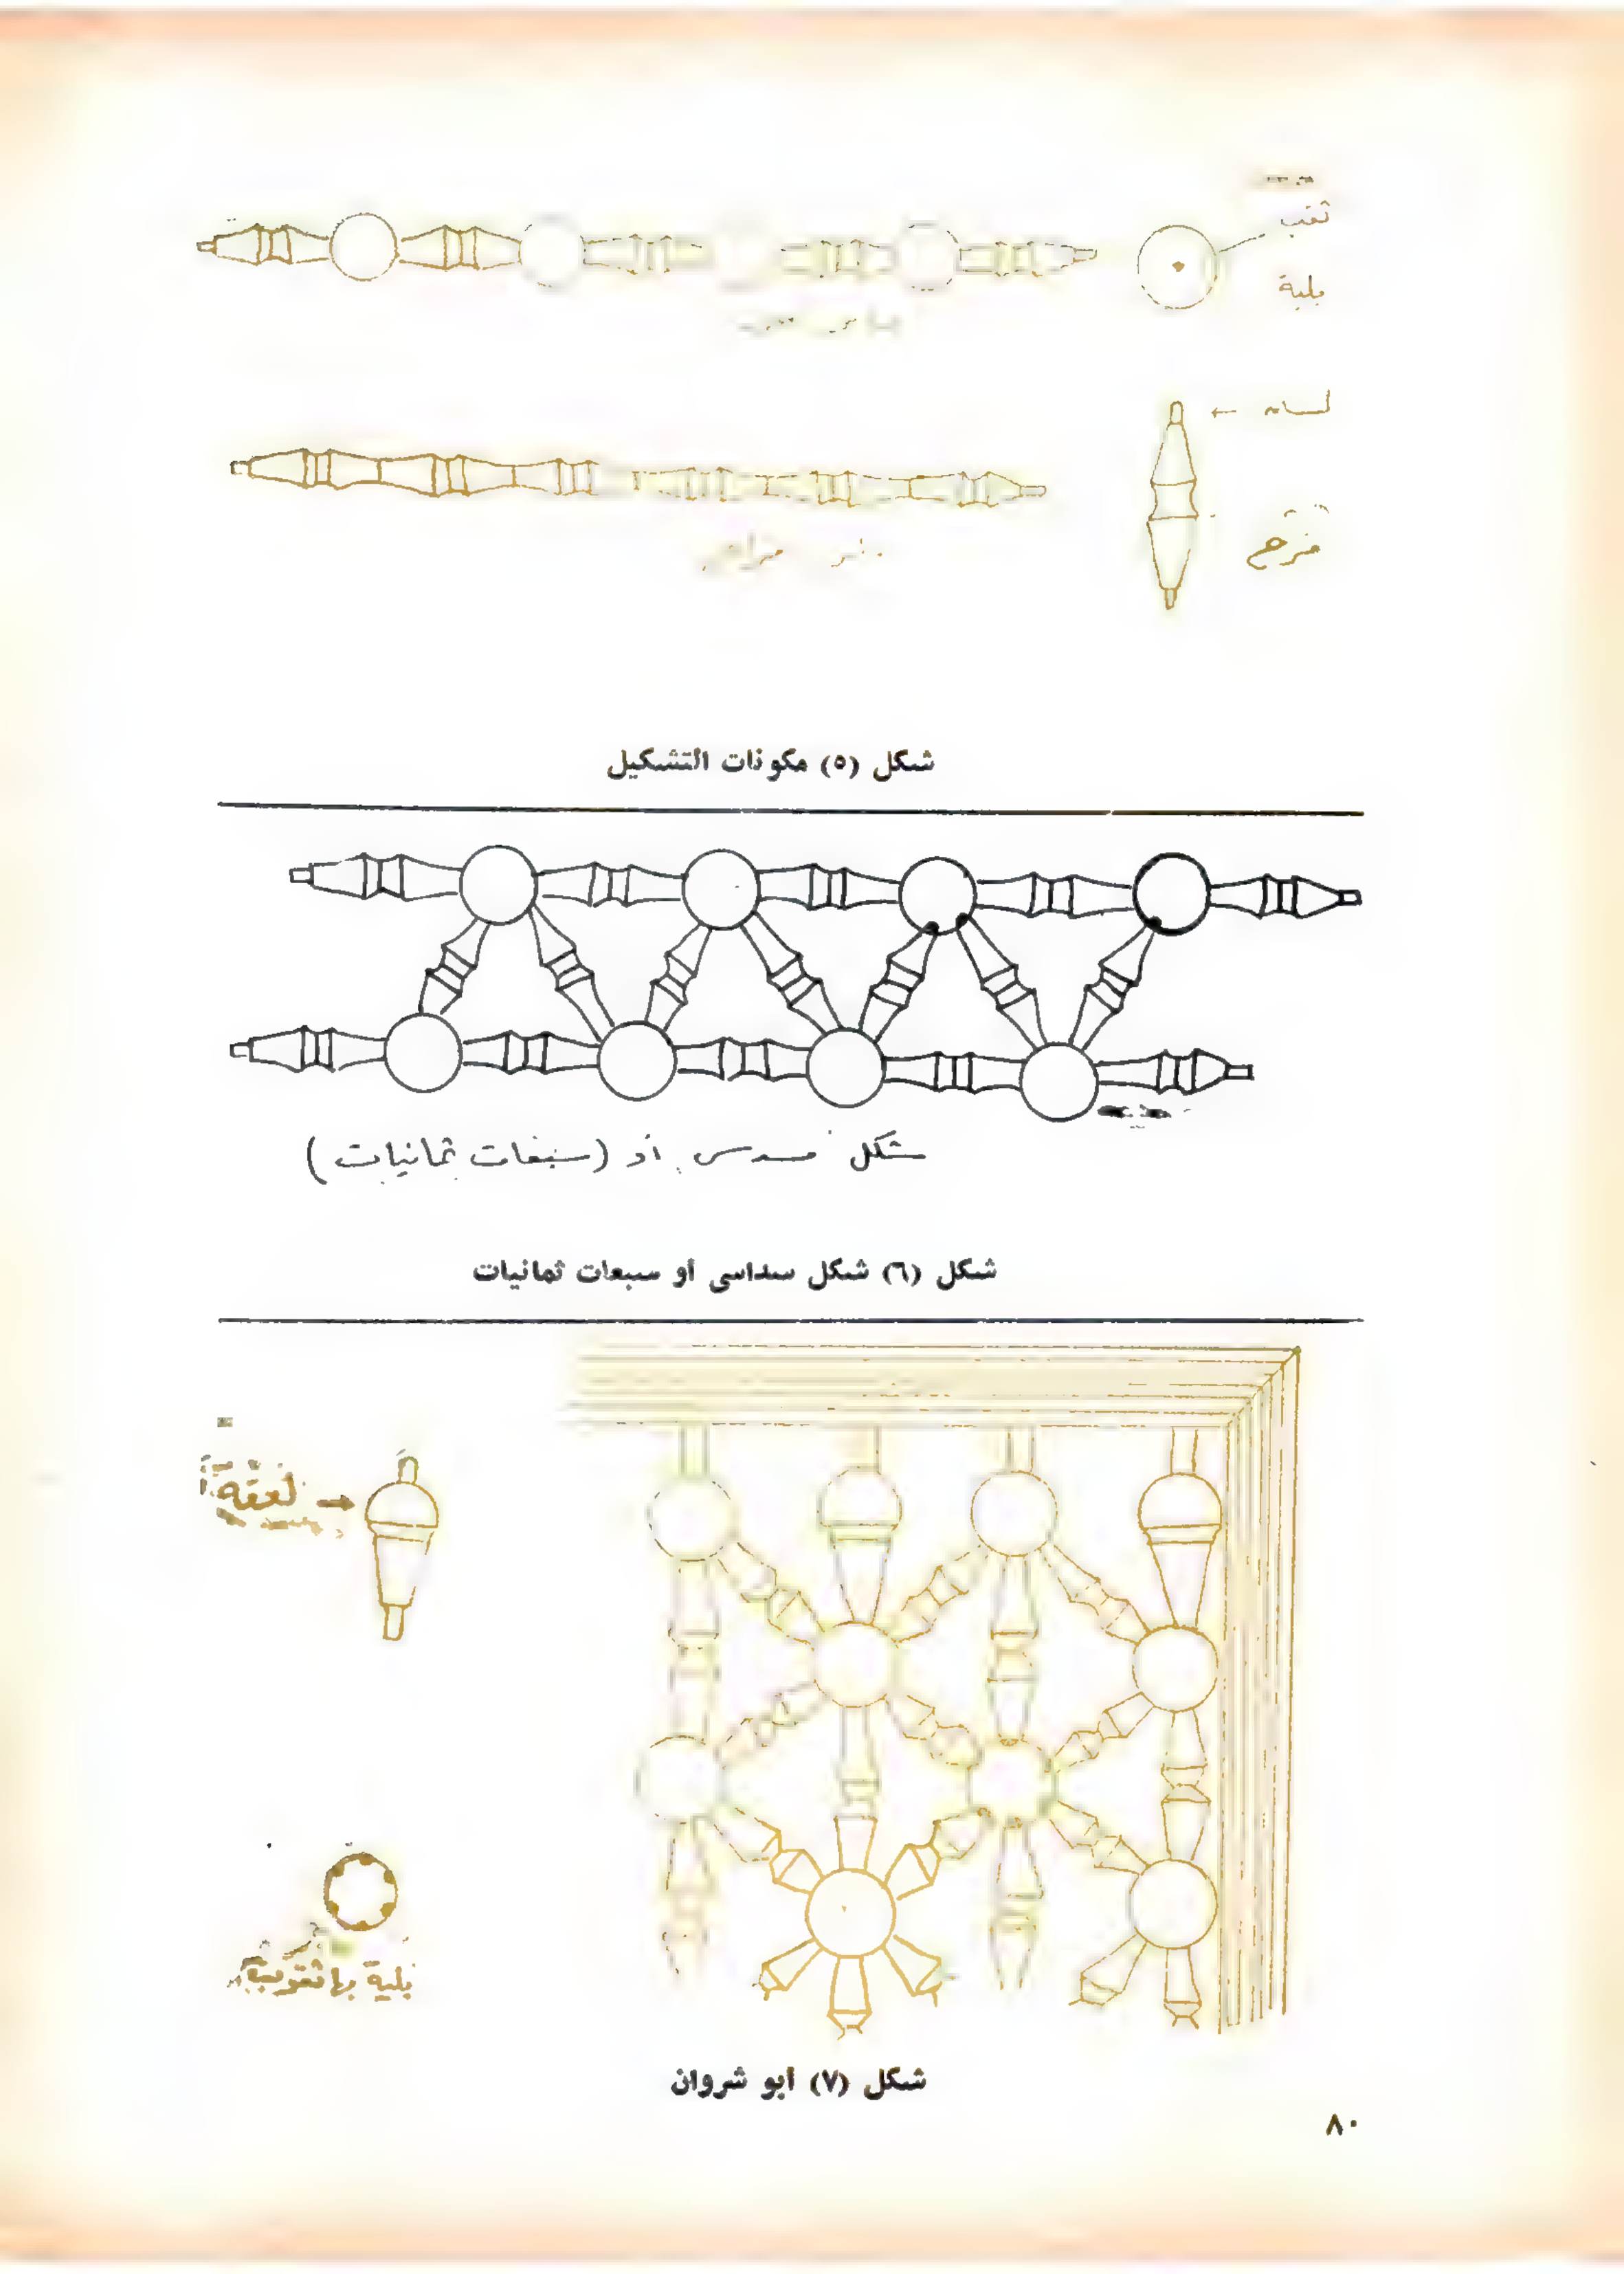 ثقب
بلية
لسان
فرخ
شكل (٥) مكونات التشكيل
شكل مسدس أو (سبعات ثمانيات)
شكل (٦) شكل سداسى أو سبعات ثمانيات
بلية بها ثقوب
شكل (٧) أبو شروان
٨٠